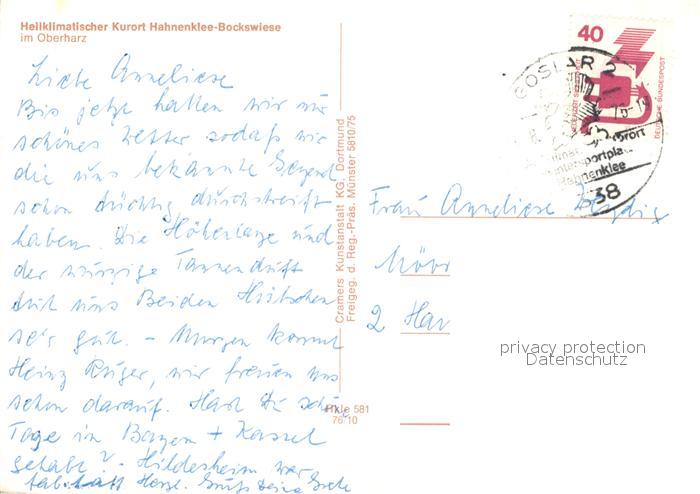 Heilklimatischer Kurort Hahnenklee-Bockswiese
im Oberharz
Liebe Anneliese
Bis jetzt hatten wir nur
schönes Wetter sodaß wir
die uns bekannte Gegend
schon tüchtig durchstreift
haben. Die Höhenlage und
der würzige Tannenduft
tut uns Beiden
sehr gut. - Morgen kommt
Heinz, wir freuen uns
schon darauf. Hast Du schöne
Tage in + Kassel
gehabt? - Hildesheim war
fabelhaft Herzl. Gruß Deine
Cramers Kunstanstalt KG, Dortmund
Freigeg. d. Reg.-Präs. Münster 5810/75
Hkle 581
76:10
40
DEUTSCHE BUNDESPOST
GOSLAR 2
Hahnenklee
38
Frau Anneliese
2 Ham
privacy protection
Datenschutz